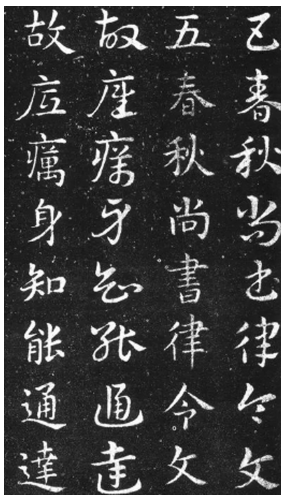 五春秋尚書律令文
五春秋尚書律令文
故癘身知能通達
故癘身知能通達